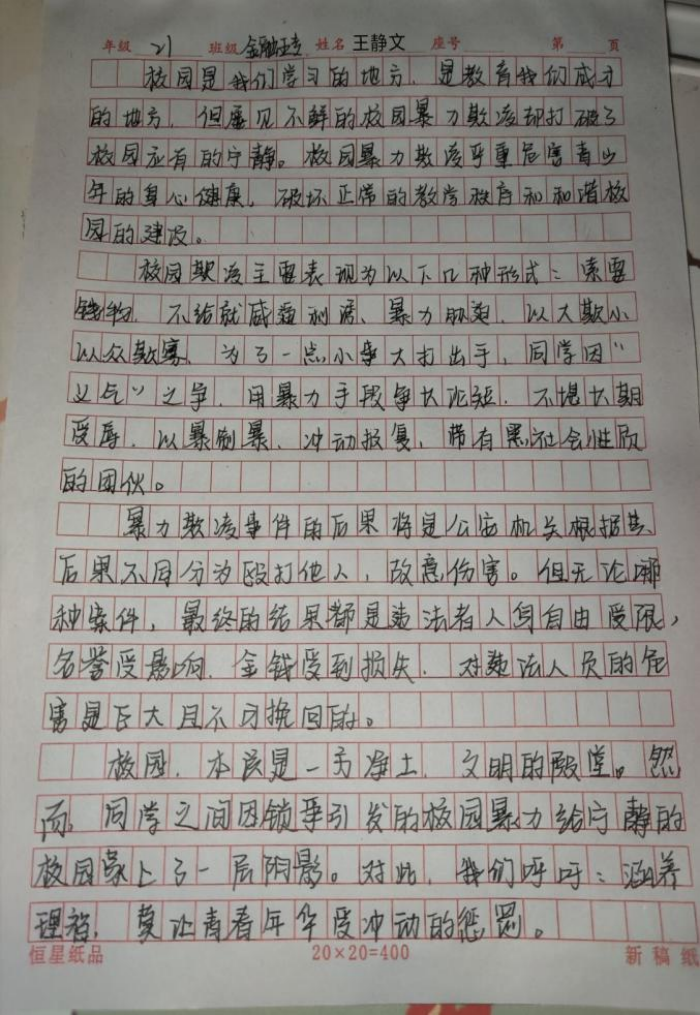 年级 21 班级 金融五专 姓名 王静文 座号 第 页
校园是我们学习的地方，是教育我们成才
的地方，但屡见不鲜的校园暴力欺凌却打破了
校园应有的宁静。校园暴力欺凌严重危害青少
年的身心健康，破坏正常的教学秩序和和谐校
园的建设。
校园欺凌主要表现为以下几种形式：索要
钱物，不给就威逼利诱、暴力胁迫，以大欺小
以众欺寡、为了一点小事大打出手，同学因“
义气”之争，用暴力手段争长论短，不堪长期
受辱，以暴制暴、冲动报复，带有黑社会性质
的团伙。
暴力欺凌事件的后果将是公安机关根据其
后果不同分为殴打他人，故意伤害。但无论哪
种案件，最终的结果都是违法者人身自由受限，
名誉受影响，金钱受到损失，对违法人员的危
害是巨大且不可挽回的。
校园，本该是一方净土，文明的殿堂。然
而，同学之间因锁事引发的校园暴力给宁静的
校园蒙上了一层阴影。对此，我们呼吁：涵养
理智，莫让青春年华受冲动的惩罚。
恒星纸品 20×20=400 新稿纸